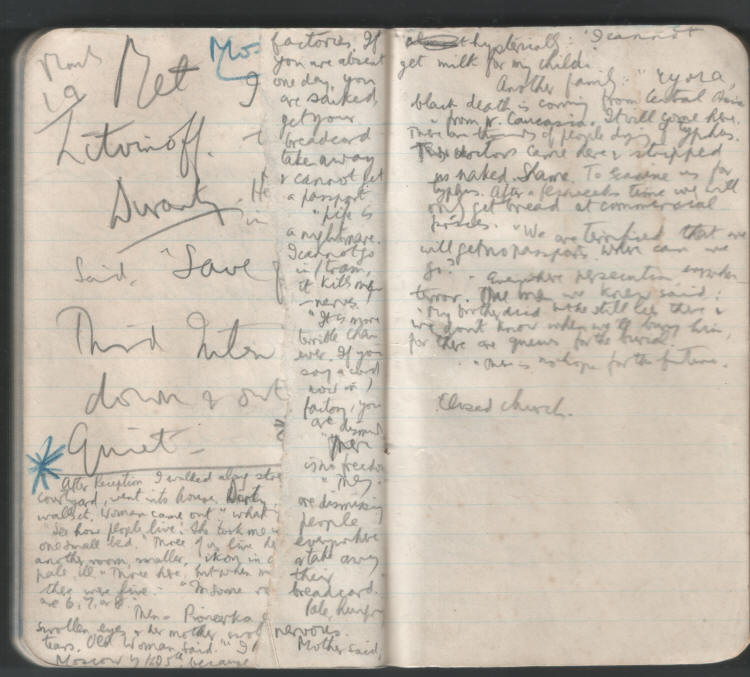 March
19
Met
Mo-
I
Litvinoff.
Duranty. He
in
Said. "Save
Third Inten
down & out
Quiet –
After Reception I walked along stre
courtyard, went into house. Dirty
walls. Woman came out "what
"See how people live. She took me
one small bed. "Three of us live he
another room, smaller, ikon in c
pale, ill. "Three here, but when
there were five. "In some ro
are 6, 7, or 8.
Then – Pionerka
swollen eyes & her mother,
tears. Old Woman said. "I
Moscow because
factories. If
you are absent
one day, you
are sacked,
get your
breadcard
take away
& cannot get
a passport
"Life is
a nightmare.
I cannot go
in tram,
it kills my
– nerves.
"It is more
terrible than
ever. If you
say a word
now in
factory, you
are dismis
"There
is no freedo
"They
are dismissing
people
everywhere
& take away
their
breadcard.
Pale, hungry
nervous.
Mother said,
hysterically: "I cannot
get milk for my child.
Another family: "
black death is coming from Central Asia
" from N. Caucasia. It will come here.
There are thousands of people dying of typhus.
doctors came here & stripped
us naked. Shame. To examine us for
typhus. After a few weeks time we will
only get bread at commercial
prices. "We are terrified that we
will get no passports. Where can we
go?" – Everywhere persecution everywhere
terror. One man we knew said:
"My brother died & he still lies there &
we don't know when we'll bury him,
for there are queues for the burial.
"There is no hope for the future.
Closed church.